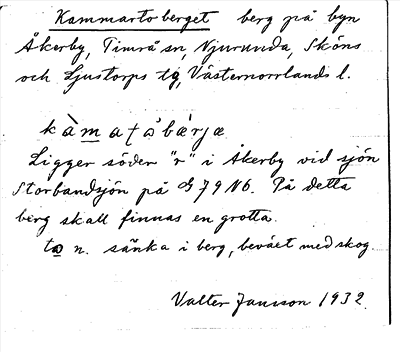 Kammartoberget berg på byn
Åkerby, Timrå sn, Njurunda, Sköns
och Ljustorps tg, Västernorrlands l.
kàmaʈåbǽrjæ
Ligger söder "r" i Åkerby vid sjön
Storbandsjön på G 79 N6. På detta
berg skall finnas en grotta.
to n. sänka i berg, beväxt med skog.
Valter Jansson 1932